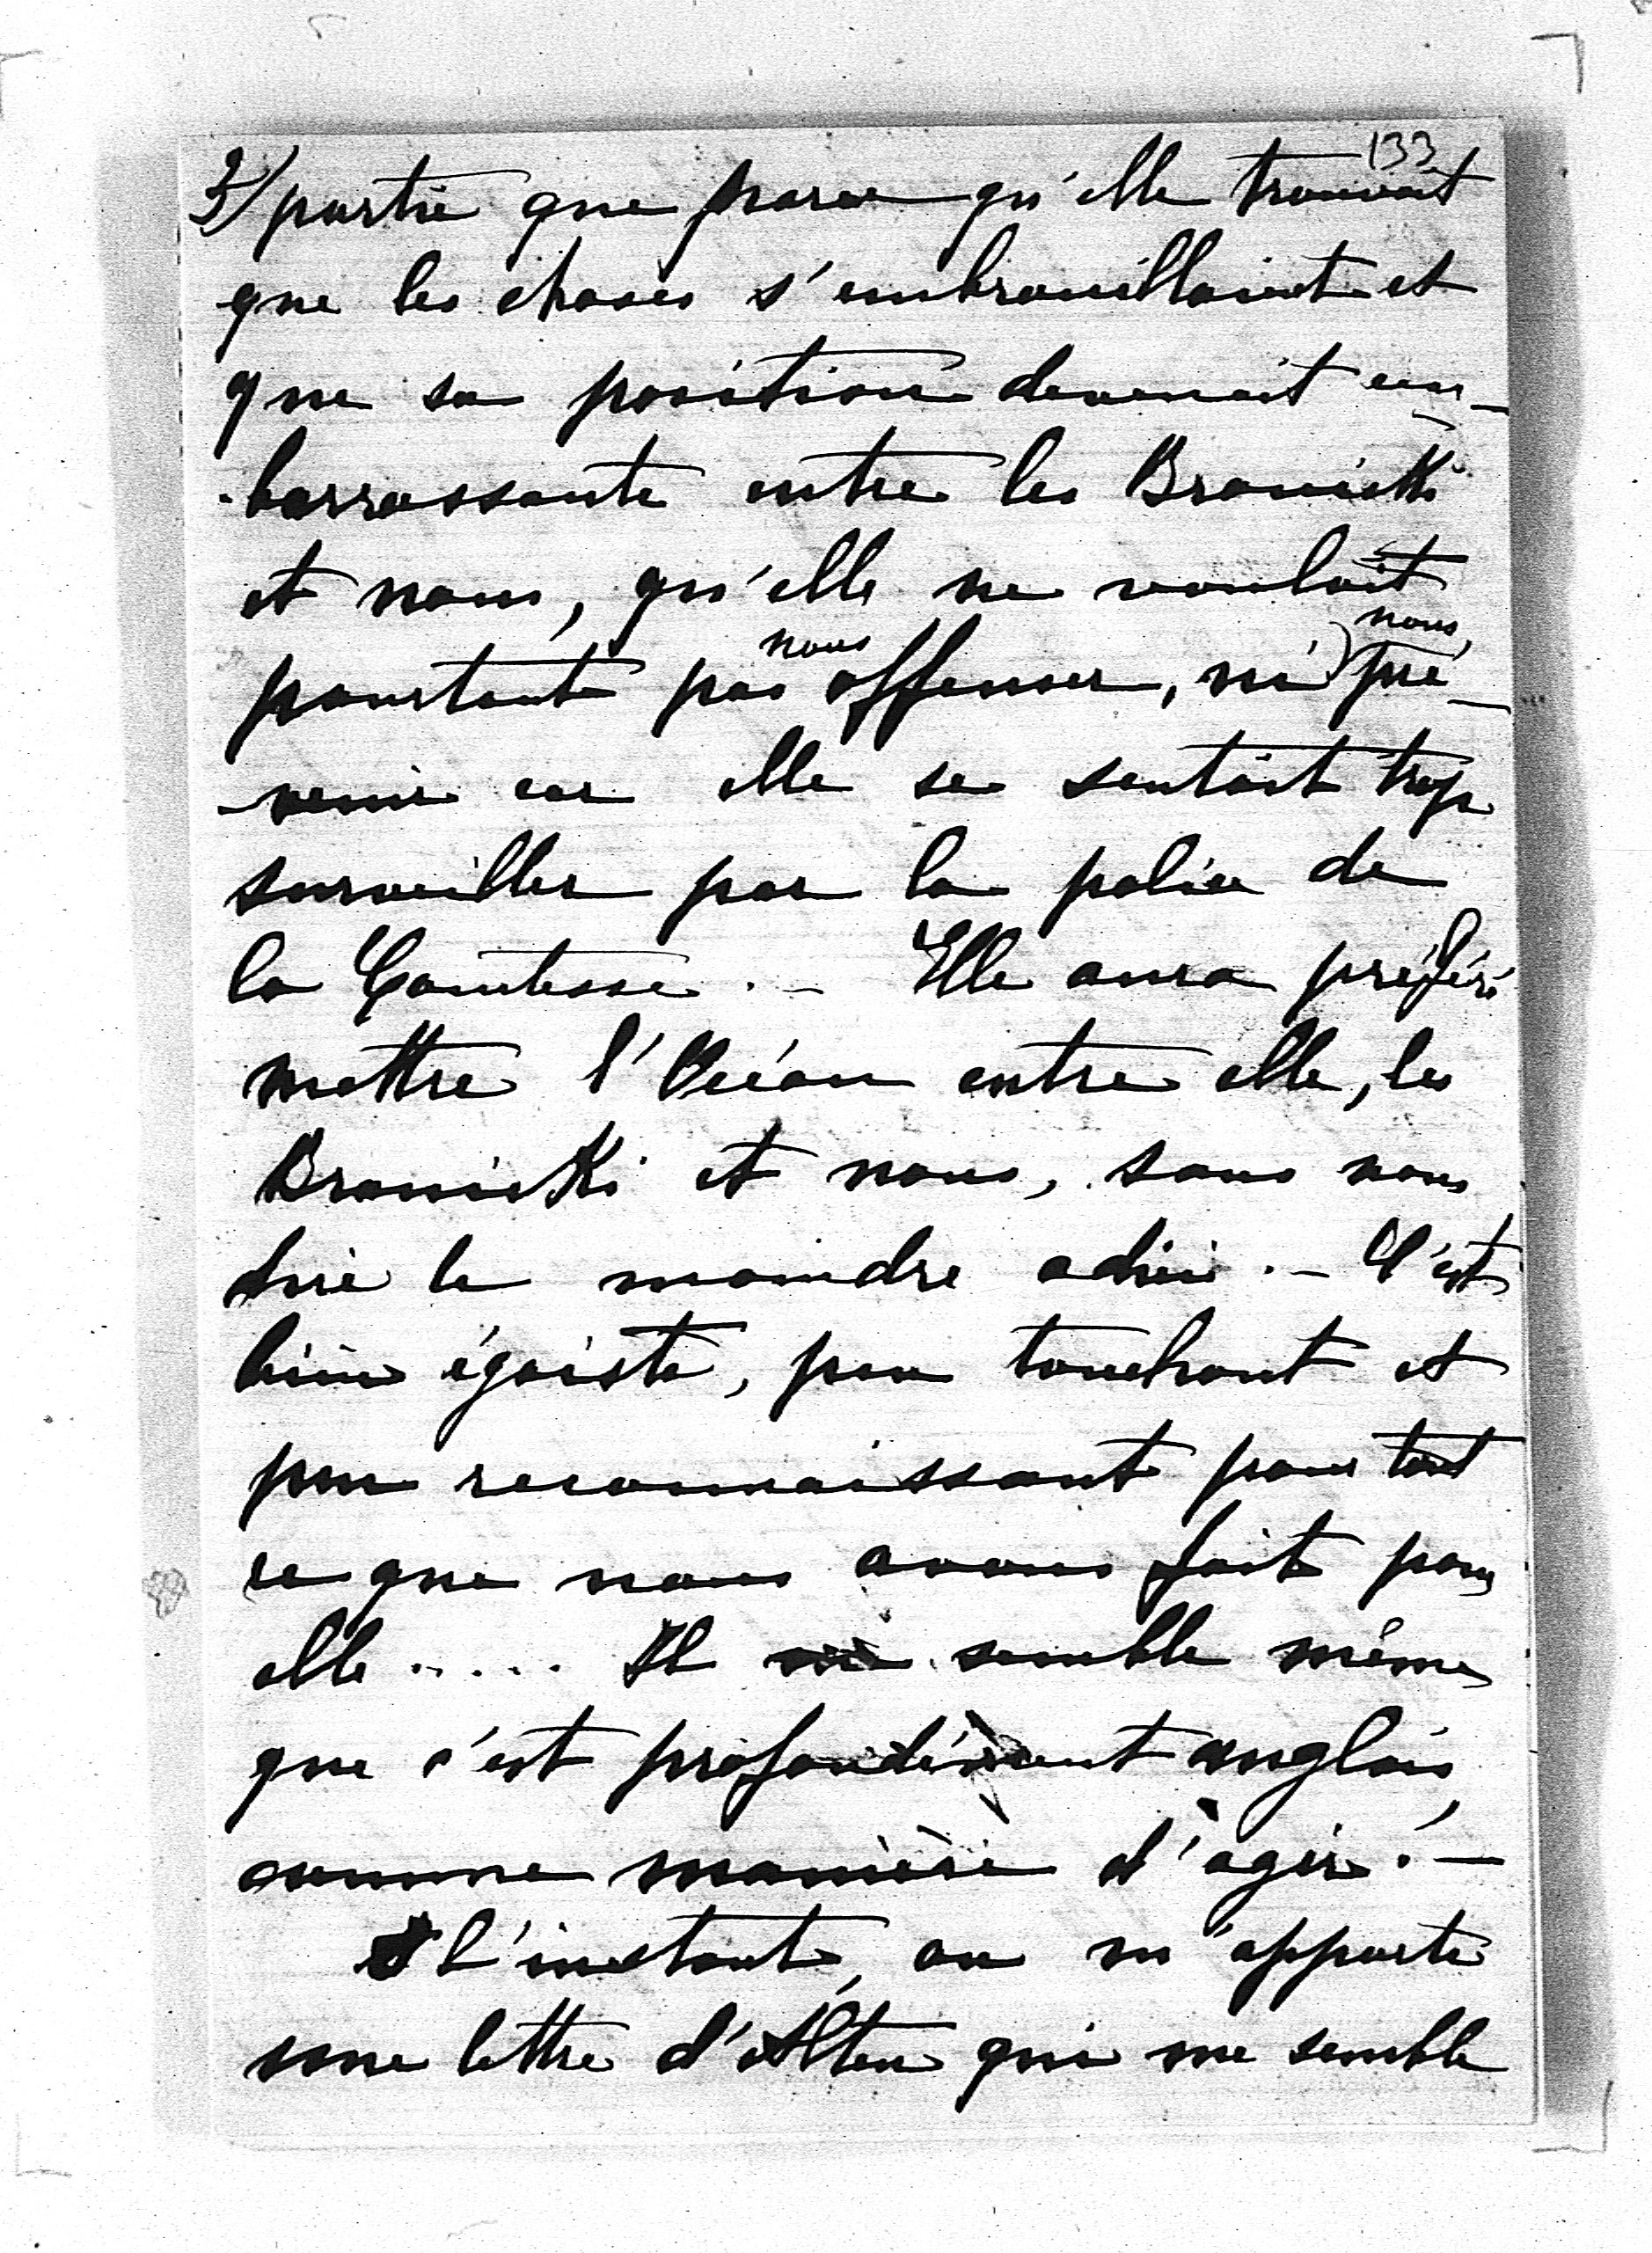 133
3/ partie que parce qu'elle trouvait
que les choses s'embrouillaient et
que sa position devenait em-
-barrassante entre les Branicki
et nous, qu'elle ne voulait
pourtant pas nous offenser, ni nous pré-
-venir car elle se sentait trop
surveiller par la police de
la Comtesse. – Elle aura préféré
mettre l'Océan entre elle, les
Branicki et nous, sans nous
dire le moindre adieu. – C'est
bien égoiste, peu touchant et
peu reconnaissant pour tout
ce que nous avons fait pour
elle..... Il me semble même
que c'est profondément anglais,
comme manière d'agir. –
A l'instant, on m'apporte
une lettre d'Alten qui me semble